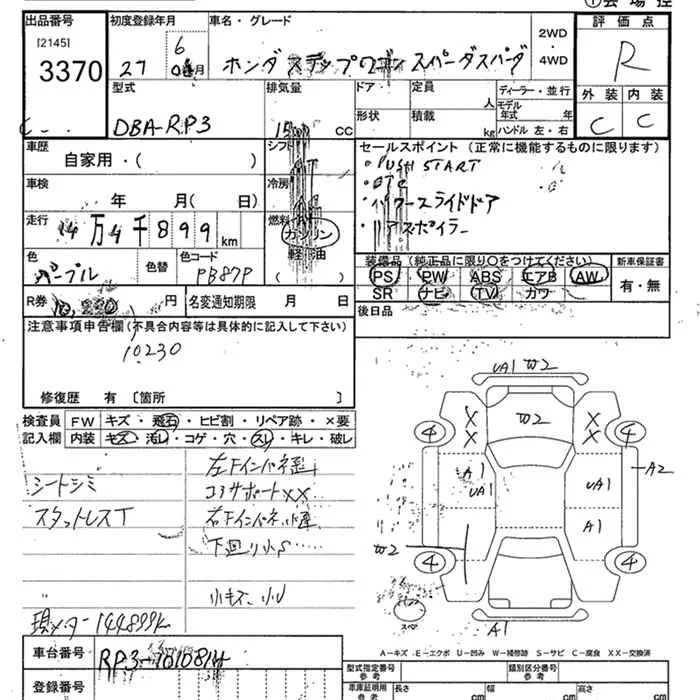 ①会場控
出品番号 初度登録年月 車名・グレード 2WD・4WD 評価点
[2145]
3370
27 6月
ホンダ ステップワゴン スパーダスパーダ
R
型式 排気量 ドア・形状 定員 人 積載 kg ディーラー・並行 モデル年式 年 ハンドル 左・右
外装 内装
DBA-RP3 1500 CC
C C
車歴 自家用・( )
シフト
セールスポイント (正常に機能するものに限ります)
・PUSH START
・ETC
・パワースライドドア
・リアスポイラー
車検 年 月( 日)
冷房
走行 14万4千899km
燃料 ガソリン 軽油 ( )
色 パープル 色替 色コード PB87P
装備品 (純正品に限り○をつけてください) 新車保証書
PS PW ABS エアB AW 有・無
SR ナビ TV カワ
R券 円 名変通知期限 月 日
後日品
注意事項申告欄 (不具合内容等は具体的に記入して下さい)
10230
修復歴 有 〔箇所 〕
検査員記入欄 FW キズ・飛石・ヒビ割・リペア跡・×要
内装 キズ・汚レ・コゲ・穴・スレ・キレ・破レ
シートシミ
スタットレスT
左Fインパネ歪
コアサポートXX
右Fインパネ小歪
下廻り小S
小キズ、小U
現メーター144899k
UA1 W2
W2
X X X X
4 4
A1 UA1 UA1 A2
A1
W2
4 4
スペア
A1
A-キズ E-エクボ U-凹み W-補修跡 S-サビ C-腐食 XX-交換済
車台番号 RP3-1010814
登録番号
型式指定番号 参考 類別区分番号 参考
車庫証明用 参考 長さ cm 幅 cm 高さ cm